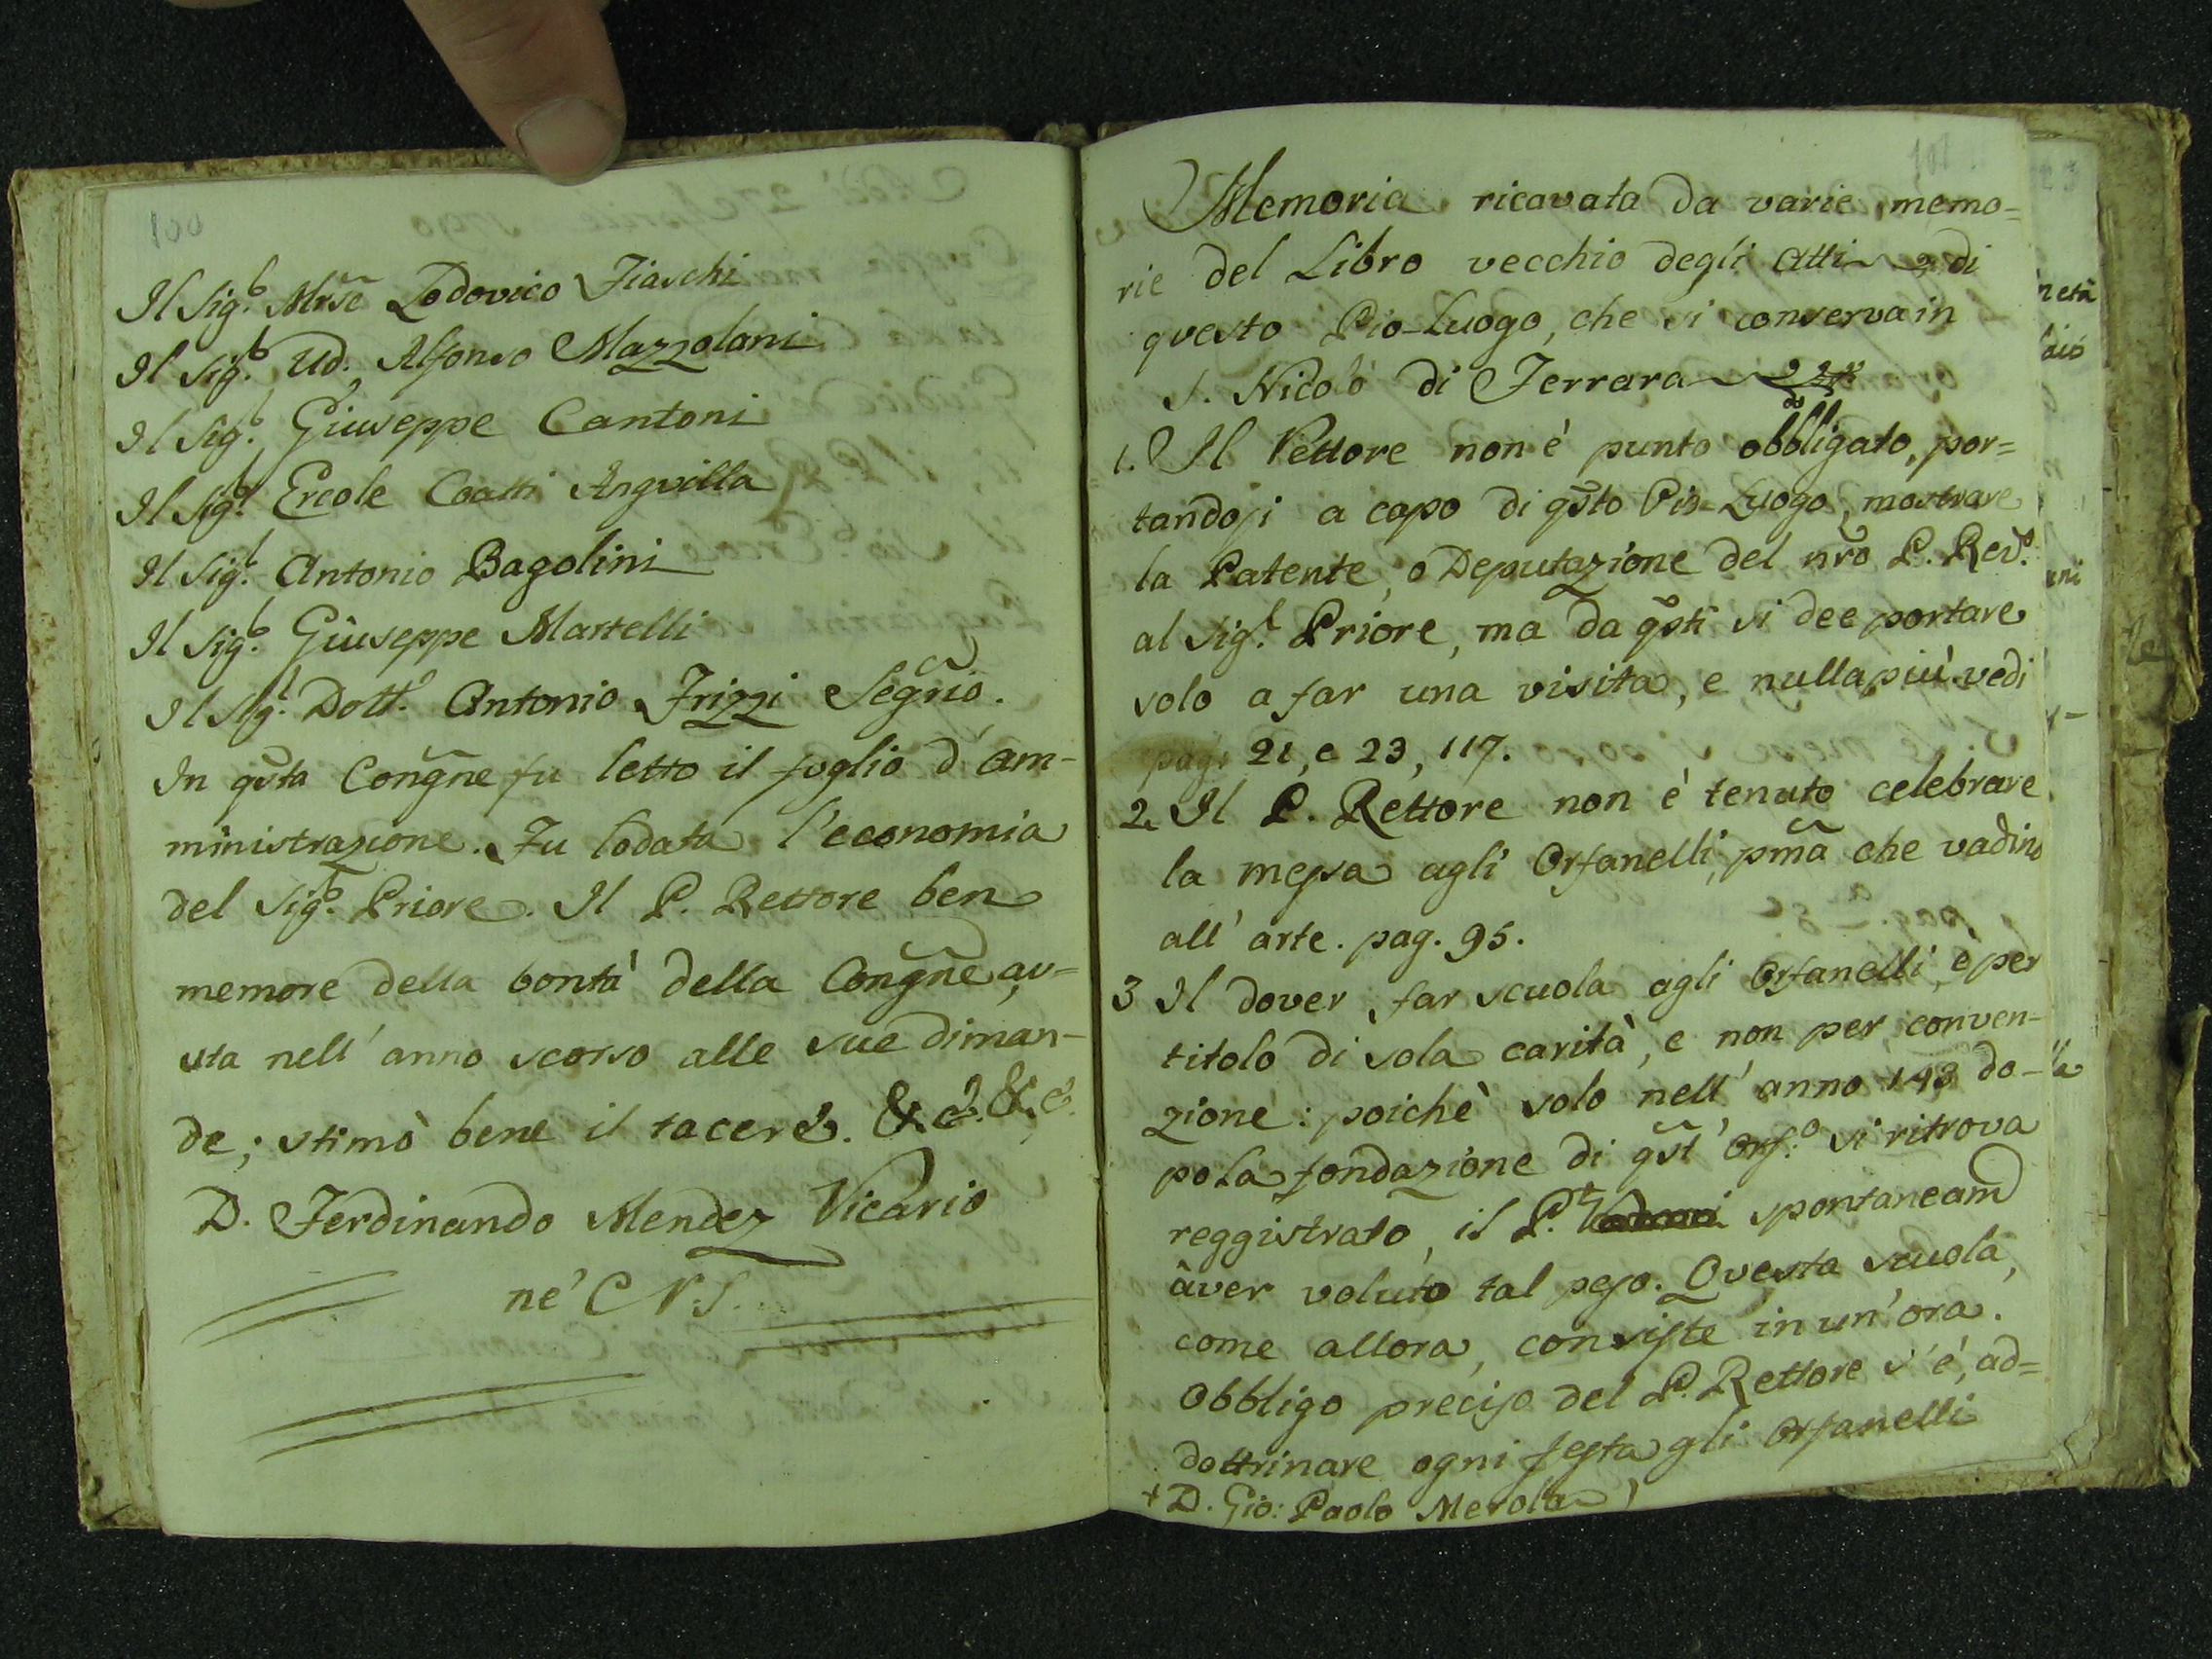 100
Il Sig.r Mrse Lodovico Fiaschi
Il Sig.r Ud. Alfonso Mazzolani
Il Sig.r Giuseppe Cantoni
Il Sig.r Ercole Coatti Anguilla
Il Sig.r Antonio Bagolini
Il Sig.r Giuseppe Martelli
Il Sig.r Dott.e Antonio Frizzi Segrio.
In qsta Congne fu letto il foglio d'am-
ministrazione. Fu lodata l'economia
del Sig.r Priore. Il P. Rettore ben
memore della bontà della Congne av=
uta nell'anno scorso alle sue diman-
de; stimò bene il tacere. &c. &c.
D. Ferdinando Mendez Vicario
ne' C R. S.
101
Memoria ricavata da varie memo=
rie del Libro vecchio degli Atti di
questo Pio-Luogo, che si conserva in
S. Nicolò di Ferrara
1. Il Rettore non è punto obbligato, por=
tandosi a capo di qsto Pio-Luogo, mostrare
la Patente, o Deputazione del nro P. Rev.o
al Sig.r Priore, ma da qsti si dee portare
solo a far una visita, e nulla più vedi
pag. 21, e 23, 117.
2. Il P. Rettore non è tenuto celebrare
la messa agli Orfanelli, pma che vadino
all'arte. pag. 95.
3 Il dover far scuola agli Orfanelli, è per
titolo di sola carità, e non per conven-
zione: poichè solo nell'anno 143 do-
po la fondazione di qst'Orf.o si ritrova
reggistrato, il P.+ spontaneam
aver voluto tal peso. Questa scuola,
come allora, consiste in un'ora.
Obbligo preciso del P. Rettore s'è, ad=
dottrinare ogni festa gli Orfanelli
+ D. Gio: Paolo Merola